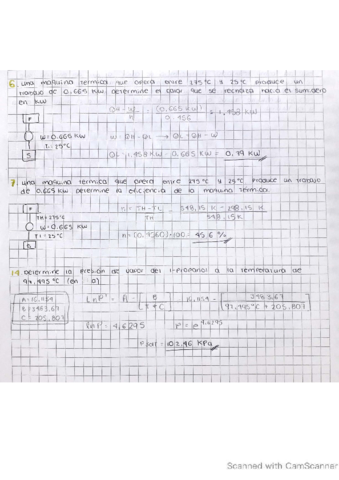 6. una maquina termica que opera entre 275°C y 25°C produce un
trabajo de 0.665 KW, determine el calor que se rechaza hacia el sumidero
en KW
QH = W/n = (0.665 KW)/0.456 = 1.458 KW
F
W=0.665 KW
T=25°C
S
W = QH - QL → QL = QH - W
QL = 1.458 KW - 0.665 KW = 0.79 KW
7. una maquina termica que opera entre 275°C y 25°C produce un trabajo
de 0.665 KW determine la eficiencia de la maquina termica.
F
TH = 275°C
W=0.665 KW
TL=25°C
n = TH - TL / TH = 548.15 K - 298.15 K / 548.15 K
n = (0.4560) × 100 = 45.6 %
14. Determine la presion de vapor del 1-Propanol a la temperatura de
97.495°C (en )
B=
C= 205.807
Ln P = A - [B / T + C]
97.495°C + 205.807
Ln P = 4.6295
P = e^4.6295
P sat = 102.46 KPa
Scanned with CamScanner